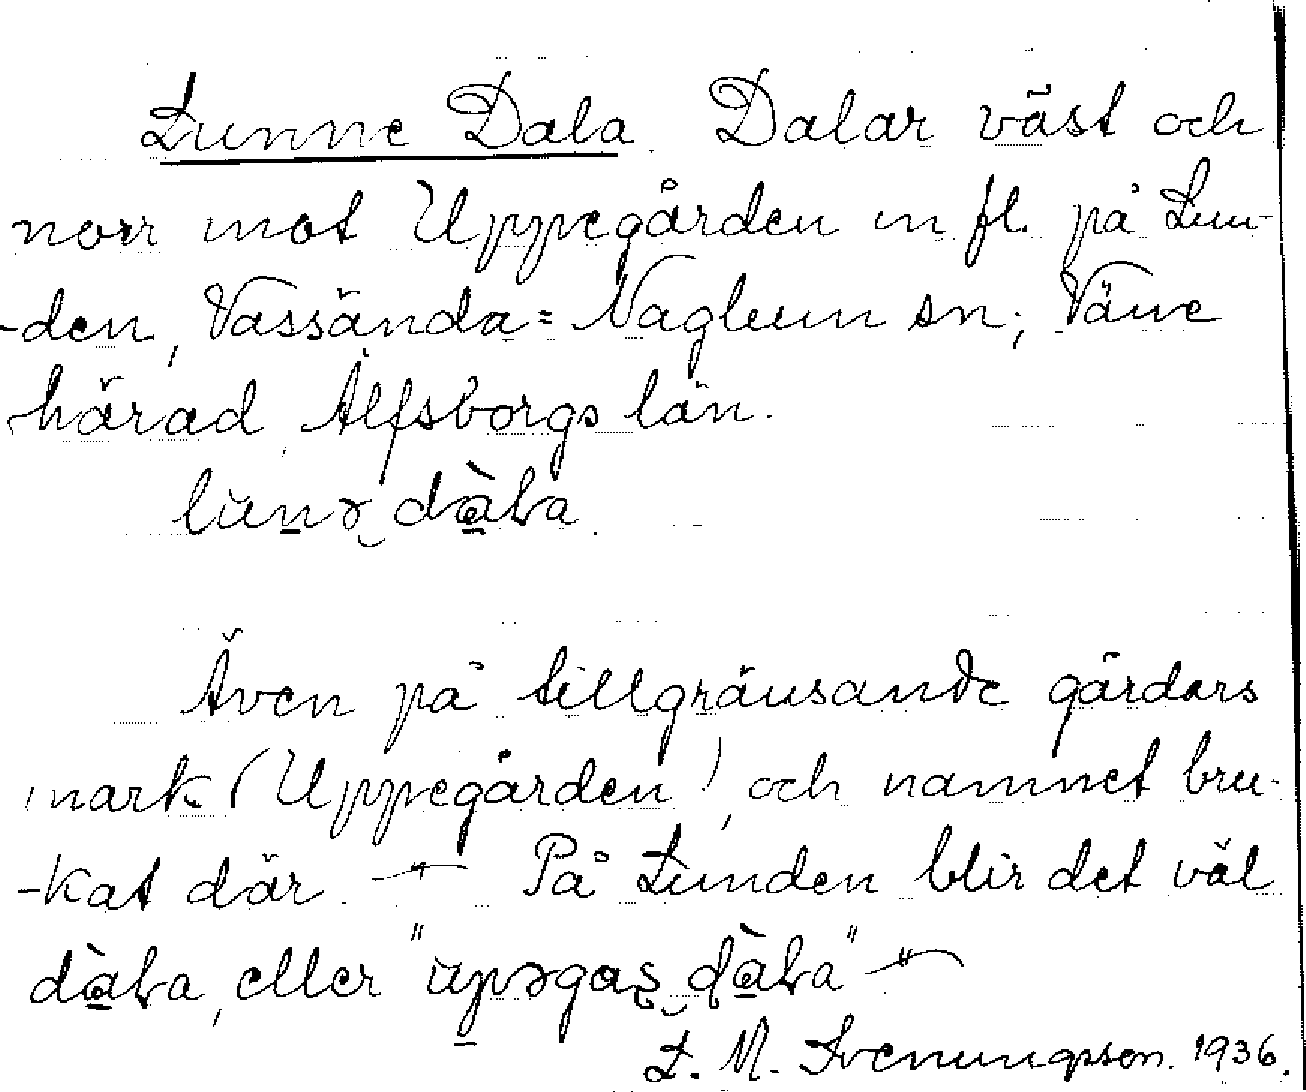 Lunne Dala. Dalar väst och
norr mot Uppegården m fl. på Lun-
-den, Vassända=Naglum sn; Väne
härad Älfsborgs län.
dàla
Även på tillgränsande gårdars
mark (Uppegården), och namnet bru-
-kat där. — På Lunden blir det väl
dàla, eller " dàla" —
L. M. Svenungsson. 1936.